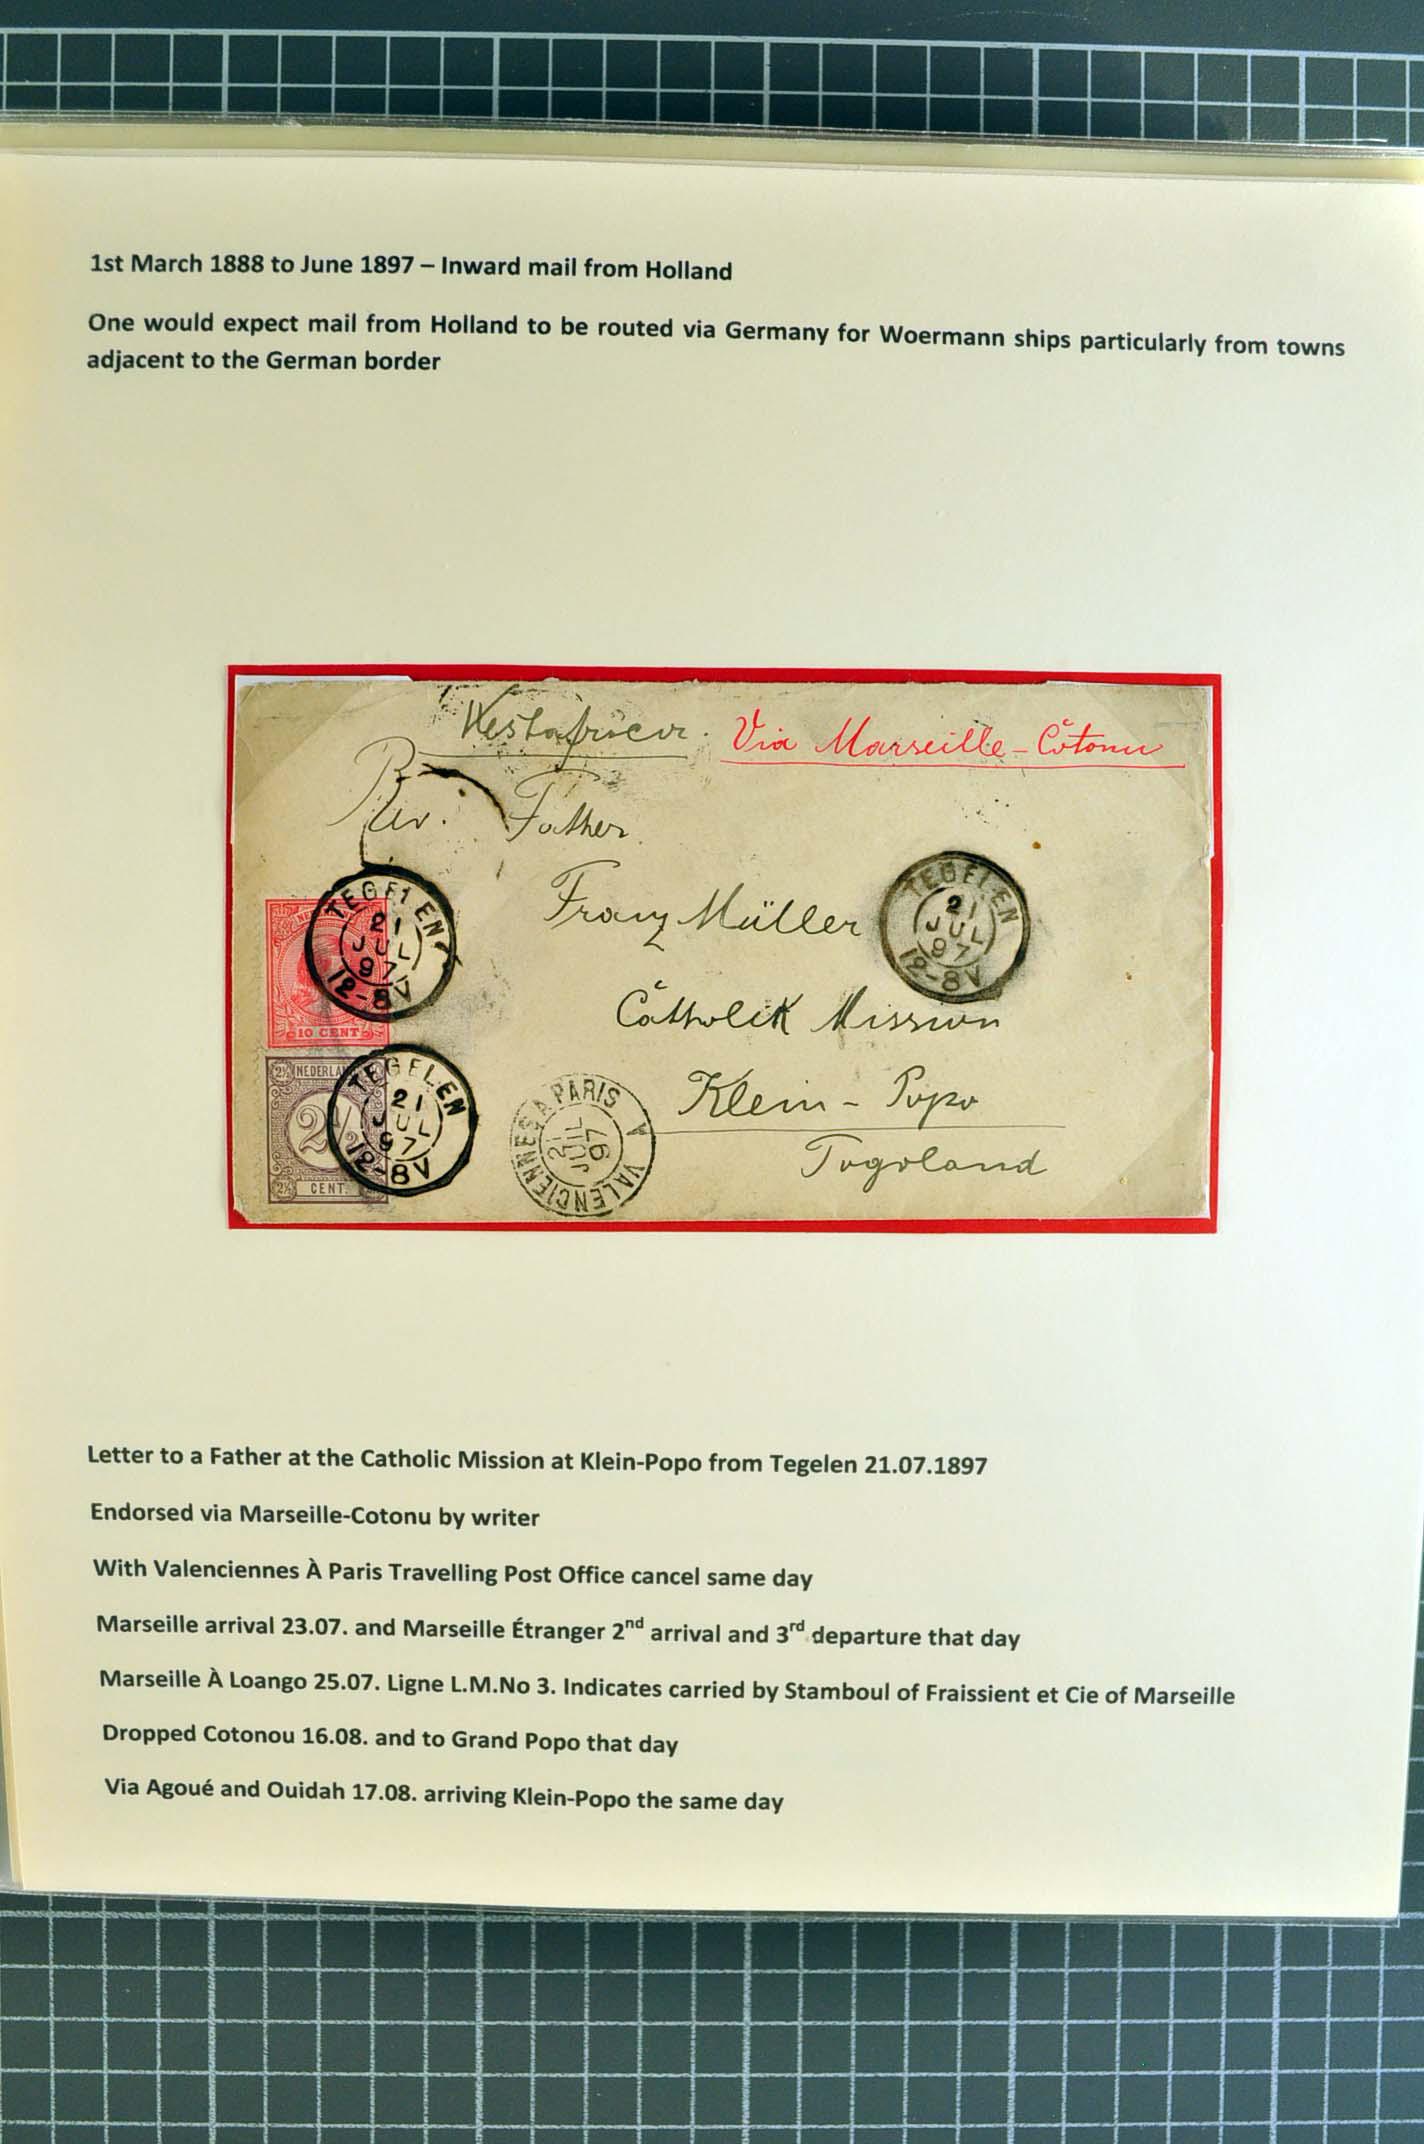 1st March 1888 to June 1897 – Inward mail from Holland
One would expect mail from Holland to be routed via Germany for Woermann ships particularly from towns
adjacent to the German border
Westafrica. Via Marseille - Cotonu
Rev. Father
Franz Müller
Catholik Mission
Klein - Popo
Togoland
TEGELEN
21
JUL
97
12-8V
10 CENT
TEGELEN
21
JUL
97
12-8V
2½ NEDERLAN
2½
2½ CENT.
TEGELEN
21
JUL
97
12-8V
VALENCIENNES A PARIS A
21
JUIL
97
Letter to a Father at the Catholic Mission at Klein-Popo from Tegelen 21.07.1897
Endorsed via Marseille-Cotonu by writer
With Valenciennes À Paris Travelling Post Office cancel same day
Marseille arrival 23.07. and Marseille Étranger 2nd arrival and 3rd departure that day
Marseille À Loango 25.07. Ligne L.M.No 3. Indicates carried by Stamboul of Fraissient et Cie of Marseille
Dropped Cotonou 16.08. and to Grand Popo that day
Via Agoué and Ouidah 17.08. arriving Klein-Popo the same day